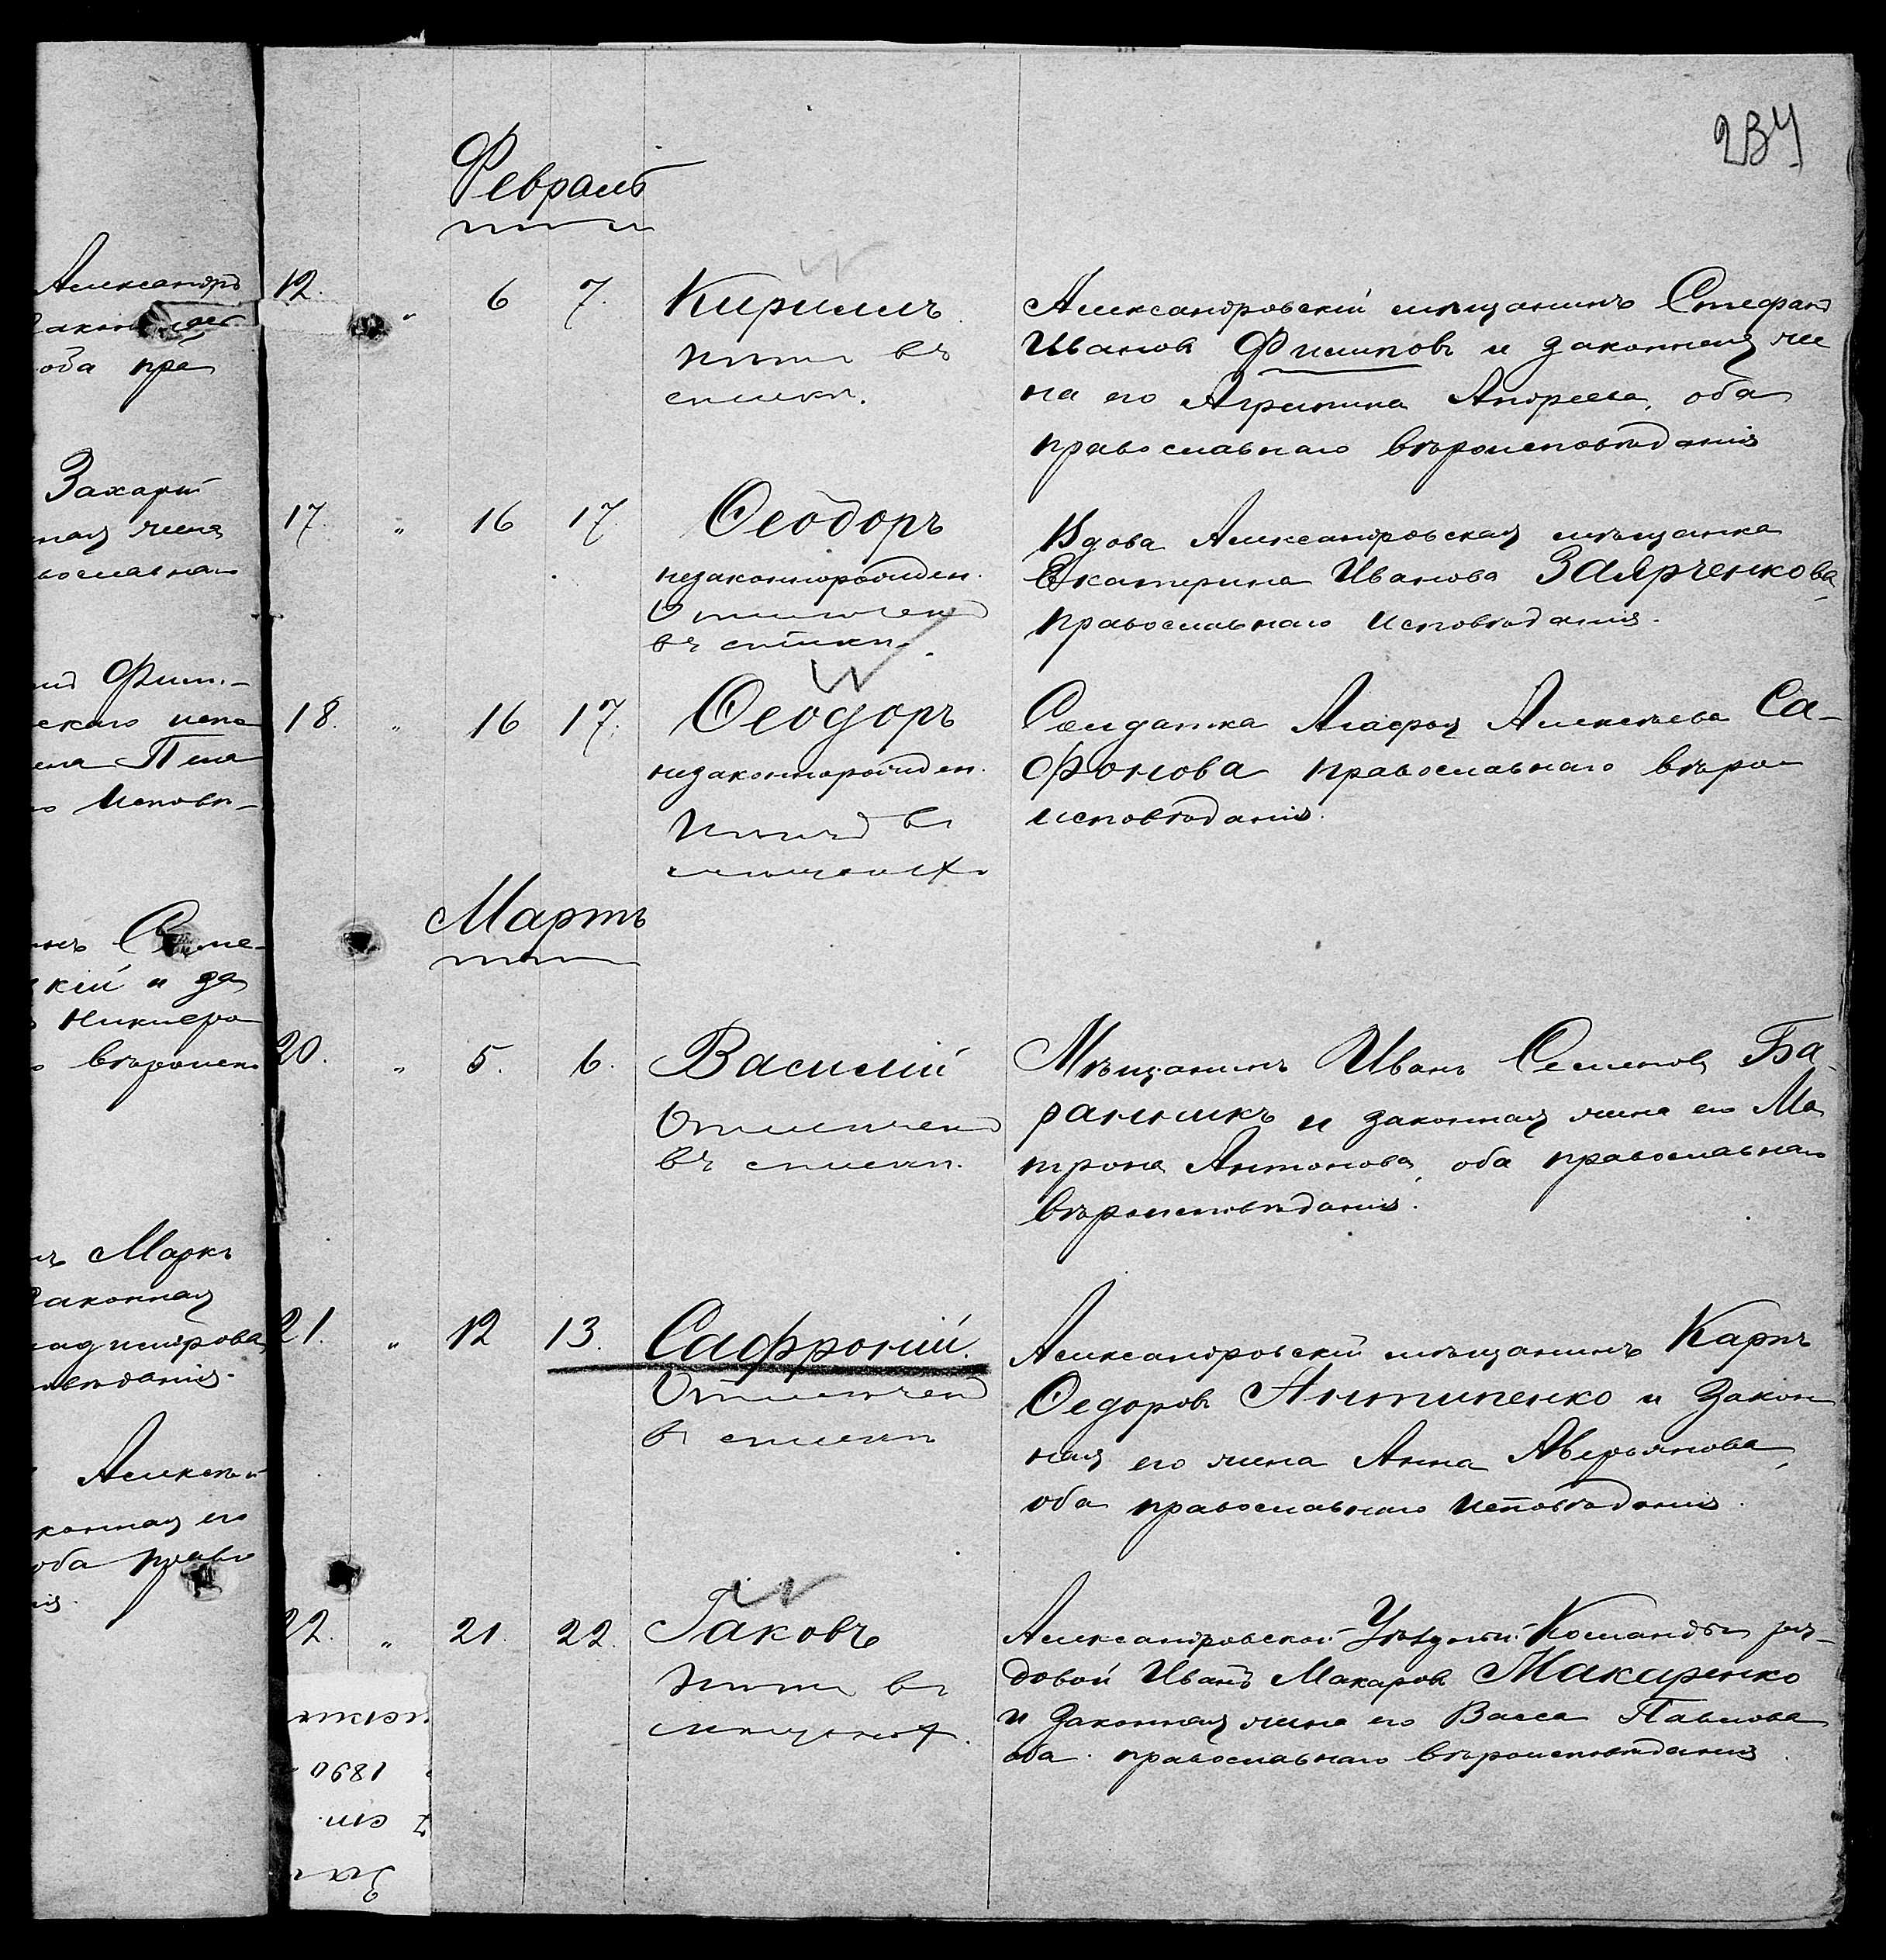 234
Февраль
Александръ
закон
оба пра
Захарій
ная жена
вославна
Фили-
скаго испо
Пела
Исповѣ-
кій и за
Никифоро
вѣроиспо
Маркъ
законная
ладимірова
Алексѣй
конная его
оба право
12. " 6 7. Кириллъ
Нѣтъ въ
спискѣ.
Александровскій мѣщанинъ Стефанъ
Ивановъ Филиповъ и законная же
на его Агрипина Андреева, оба
православнаго вѣроисповѣданія
17. " 16 17. Ѳеодоръ
незаконнорожден.
Отмѣченъ
въ спискѣ.
Вдова Александровская мѣщанка
Екатерина Иванова Заярченкова,
православнаго исповѣданія.
18. " 16 17. Ѳеодоръ
незаконнорожден.
въ
Солдатка Агафія Алексѣева Са-
фонова православнаго вѣро-
исповѣданія.
Мартъ
20. " 5. 6. Василій
Отмѣченъ
въ спискѣ.
Мѣщанинъ Иванъ Семеновъ Ба-
ранникъ и законная жена его Ма
трона Антонова, оба православнаго
вѣроисповѣданія.
21. " 12 13. Сафроній.
Отмѣченъ
въ спискѣ
Александровскій мѣщанинъ Карпъ
Ѳедоровъ Антипенко и закон
ная его жена Анна Аверьянова,
оба православнаго исповѣданія.
22. " 21. 22. Іаковъ
Нѣтъ въ
Александровской Уѣздной Команды ря-
довой Иванъ Макаровъ Макаренко
и законная жена его Васса Павлова
оба православнаго вѣроисповѣданія.
1890
ст.